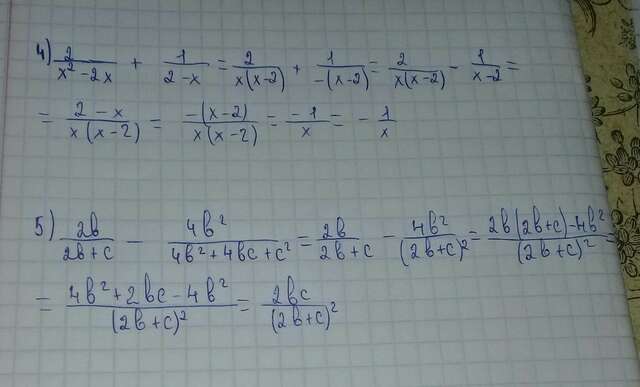 4) 2/(x² - 2x) + 1/(2 - x) = 2/(x(x-2)) + 1/(-(x-2)) = 2/(x(x-2)) - 1/(x-2) =
= (2 - x)/(x(x-2)) = -(x-2)/(x(x-2)) = -1/x = - 1/x
5) 2в/(2в+c) - 4в²/(4в²+4вc+c²) = 2в/(2в+c) - 4в²/(2в+c)² = (2в(2в+c)-4в²)/(2в+c)² =
= (4в²+2вc-4в²)/(2в+c)² = 2вc/(2в+c)²